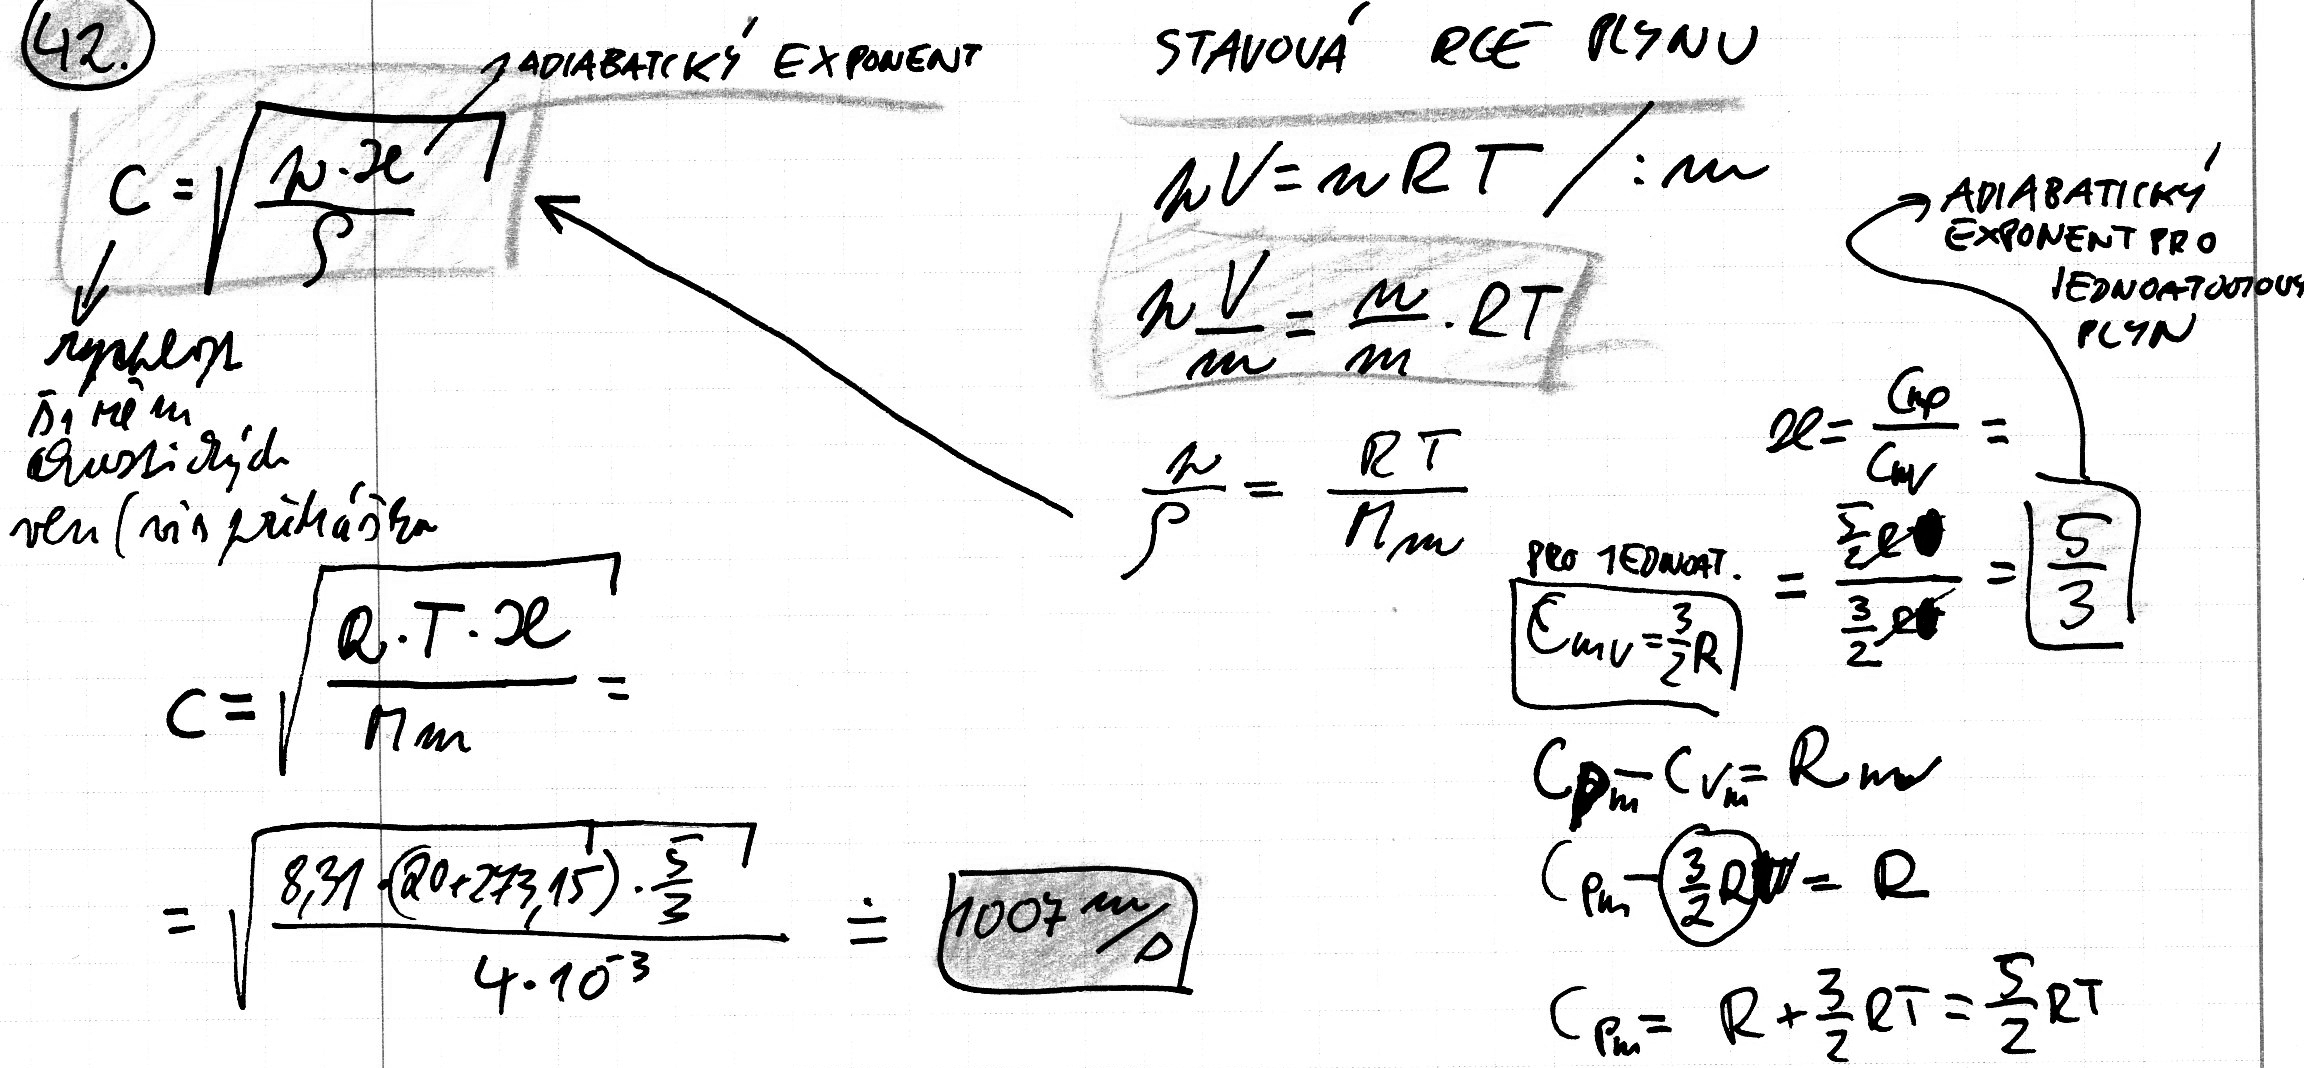 42.
ADIABATICKÝ EXPONENT
c = √(p·ϰ / ρ)
rychlost
šíření
akustických
vln (viz přikáška
c = √(R·T·ϰ / Mm) =
= √(8,31·(20+273,15)·5/3 / 4·10⁻³) ≐ 1007 m/s
STAVOVÁ RCE PLYNU
pV = nRT / :m
p V/m = n/m · RT
p/ρ = RT/Mm
ADIABATICKÝ
EXPONENT PRO
JEDNOATOMOVÝ
PLYN
ϰ = Cmp/Cmv =
= 5/2 R / 3/2 R = 5/3
PRO JEDNOAT.
Cmv = 3/2 R
Cpm - Cvm = Rm
Cpm - 3/2 R = R
Cpm = R + 3/2 RT = 5/2 RT